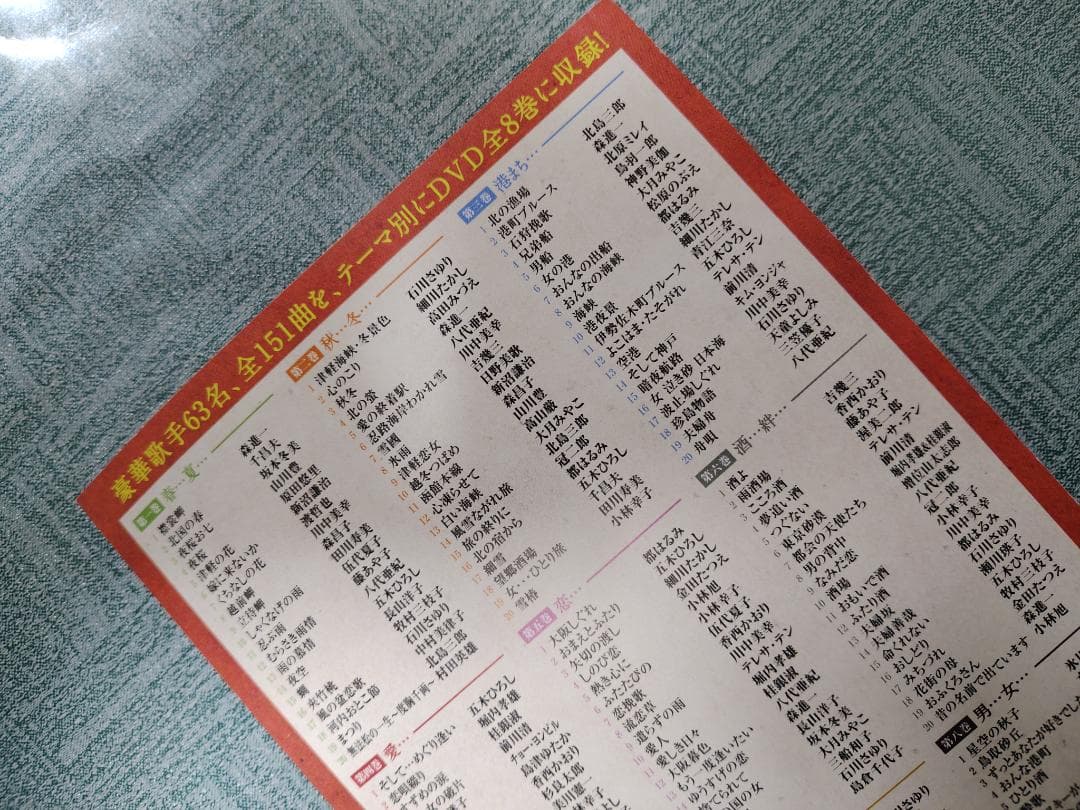 豪華歌手63名、全151曲を、テーマ別にDVD全8巻に収録!
第一巻 春…夏…
襟裳岬 森進一
北国の春 千昌夫
夜桜お七 坂本冬美
夜桜 山川豊
津軽の花 原田悠里
嫁に来ないか 新沼謙治
くちなしの花 渡哲也
越前岬 川中美幸
立待岬 森昌子
しゃくなげの雨 田川寿美
忍ぶ雨 伍代夏子
むらさき雨情 藤あや子
雨の慕情 八代亜紀
夜空 五木ひろし
蜩 長山洋子
夾竹桃 牧村三枝子
風の盆恋歌 石川さゆり
河内おとこ節 中村美律子
まつり 北島三郎
無法松の一生〜度胸千両〜 村田英雄
第二巻 秋…冬…
1 津軽海峡・冬景色 石川さゆり
2 心のこり 細川たかし
3 秋冬 高田みづえ
4 北の蛍 森進一
5 愛の終着駅 八代亜紀
6 忍路海岸わかれ雪 川中美幸
7 雪國 吉幾三
8 氷雨 日野美歌
9 津軽恋女 新沼謙治
10 越冬つばめ 森昌子
11 函館本線 山川豊
12 心凍らせて 高山厳
13 白い海峡 大月みやこ
14 風雪ながれ旅 北島三郎
15 旅の終りに 冠二郎
16 北の宿から 都はるみ
17 細雪 五木ひろし
18 望郷酒場 千昌夫
19 女…ひとり旅 田川寿美
20 雪椿 小林幸子
第三巻 港まち…
1 北の漁場 北島三郎
2 港町ブルース 森進一
3 石狩挽歌 北原ミレイ
4 兄弟船 鳥羽一郎
5 男船 神野美伽
6 女の港 大月みやこ
7 おんなの出船 松原のぶえ
8 おんなの海峡 都はるみ
9 海峡 吉幾三
10 港夜景 細川たかし
11 伊勢佐木町ブルース 青江三奈
12 よこはま・たそがれ 五木ひろし
13 空港 テレサ・テン
14 そして神戸 前川清
15 暗夜航路 キム・ヨンジャ
16 女泣き砂日本海 川中美幸
17 波止場しぐれ 石川さゆり
18 珍島物語 天童よしみ
19 夫婦舟 三笠優子
20 舟唄 八代亜紀
第四巻 愛…
そして…めぐり逢い 五木ひろし
恋唄綴り 堀内孝雄
すずめの涙 桂銀淑
前川清
チョー・ヨンピル
島津ゆたか
香西かおり
第五巻 恋…
1 大阪しぐれ 都はるみ
2 おまえとふたり 五木ひろし
3 矢切の渡し 細川たかし
4 しのび恋 金田たつえ
小林幸子
ふたたびの 小林幸子
恋挽歌 伍代夏子
流恋草 香西かおり
遣らずの雨 川中美幸
愛人 テレサ・テン
愛しき日々 堀内孝雄
大阪暮色 桂銀淑
もう一度逢いたい 八代亜紀
森進一
捨てられて 長山洋子
坂本冬美
大月みやこ
三船和子
石川さゆり
島倉千代子
第六巻 酒…絆…
1 酒よ 吉幾三
2 雨酒場 香西かおり
3 こころ酒 藤あや子
4 夢追い酒 渥美二郎
5 つぐない テレサ・テン
6 東京砂漠 前川清
7 都会の天使たち 堀内孝雄&桂銀淑
8 男の背中 増位山太志郎
9 なみだ恋 八代亜紀
10 酒場 冠二郎
11 おもいで酒 小林幸子
12 ふたり酒 川中美幸
13 夫婦坂 都はるみ
14 夫婦善哉 石川さゆり
15 命くれない 瀬川瑛子
16 おしどり 五木ひろし
17 みちづれ 牧村三枝子
18 花街の母 金田たつえ
19 おふくろさん 森進一
20 昔の名前で出ています 小林旭
第八巻 男…女…
1 星空の秋子
2 鳥取砂丘
3 ずっとあなたが好きでした
おんな港町
ひとり酒